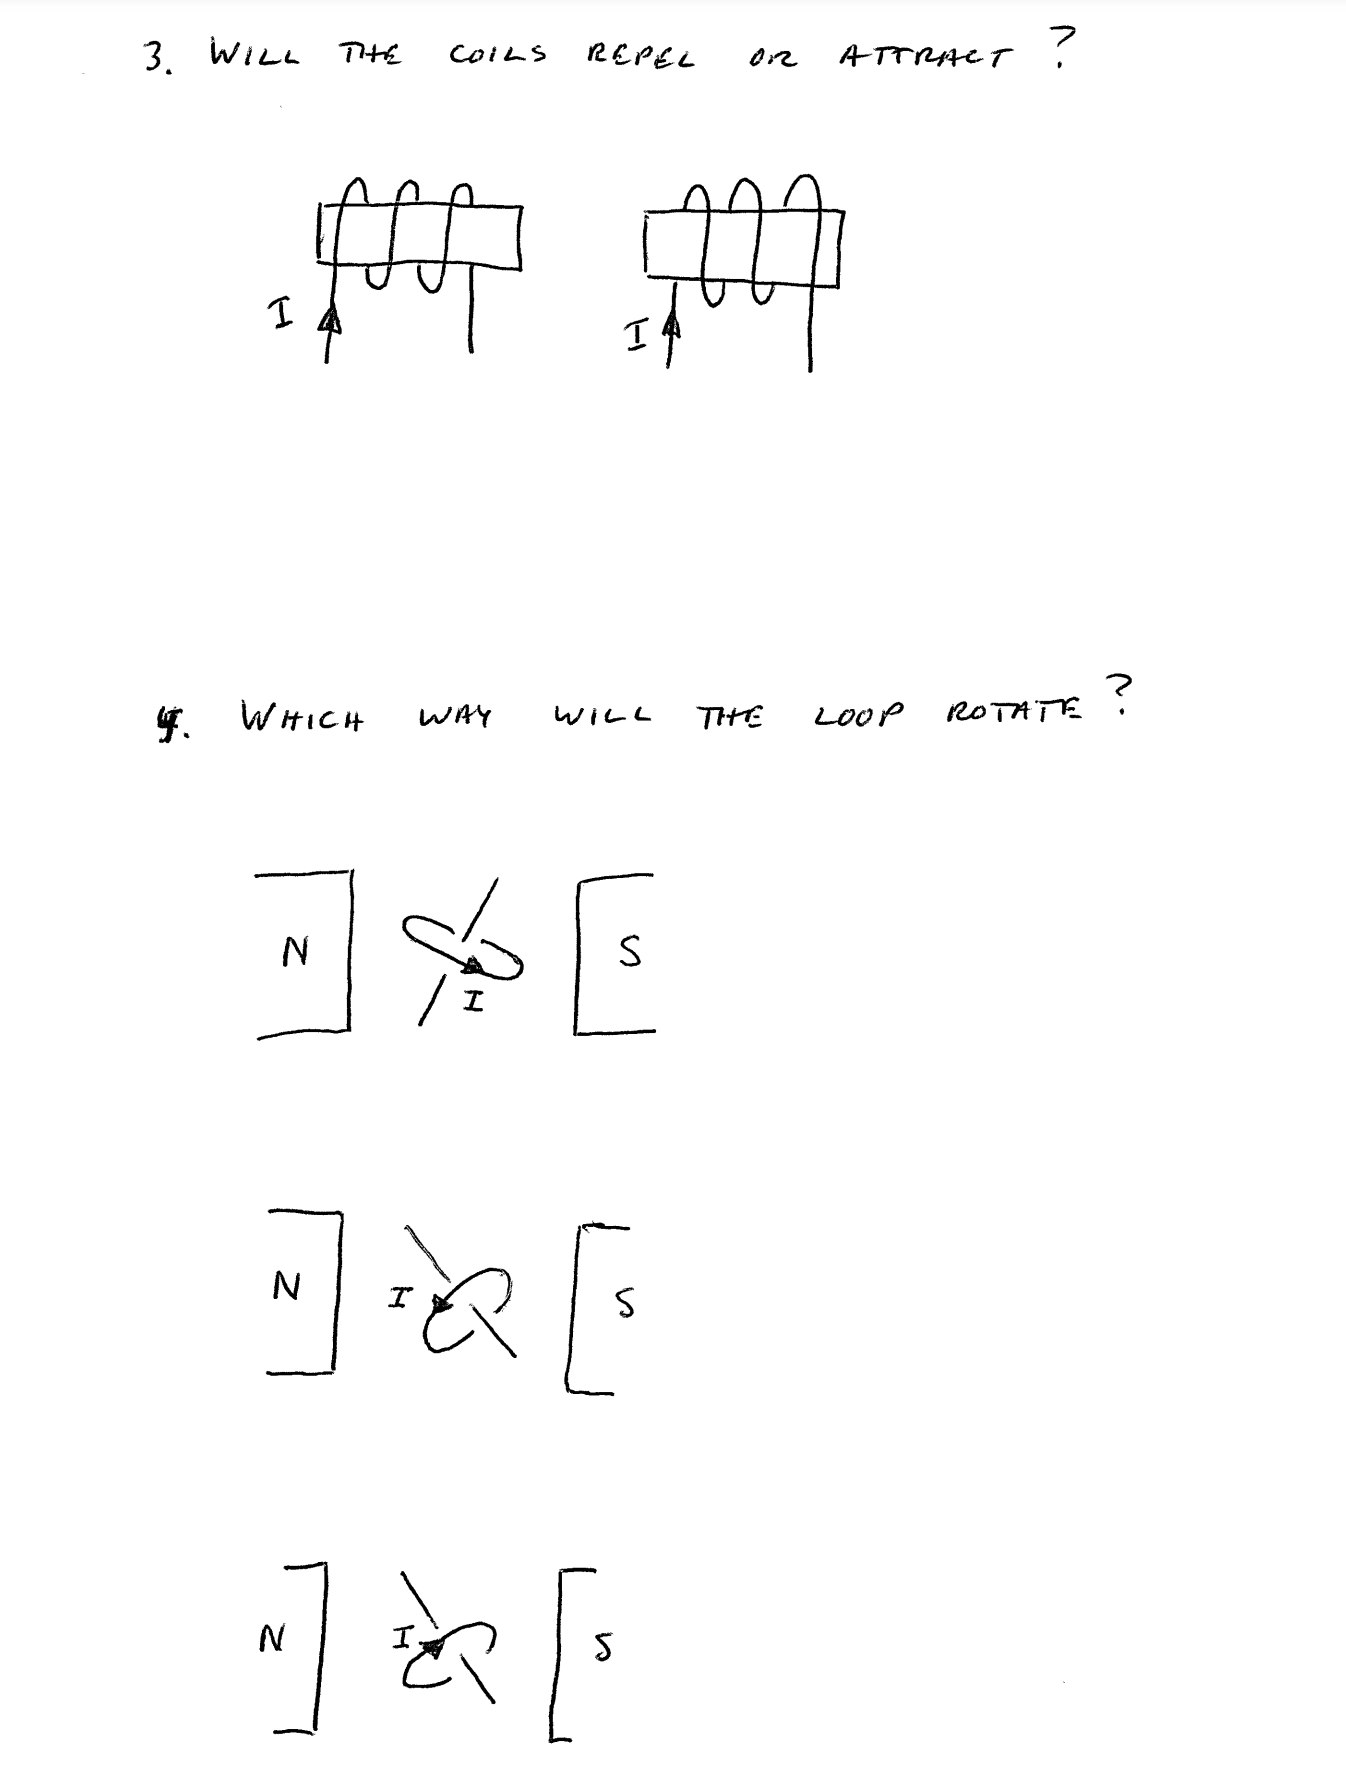 3. WILL THE COILS REPEL OR ATTRACT ?
I
I
4. WHICH WAY WILL THE LOOP ROTATE ?
N
S
I
N
I
S
N
I
S